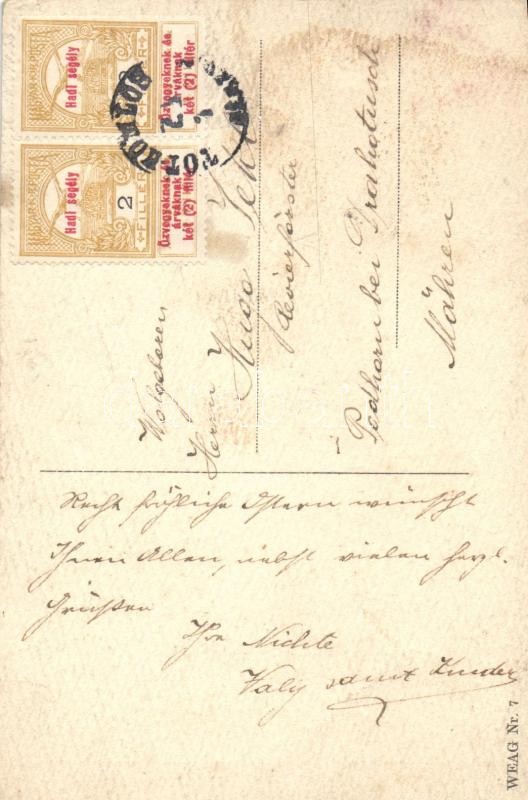 Hadi segély
Özvegyeknek és
árváknak
két (2) fillér
MAGYAR KIR. POSTA
FILLÉR
Hadi segély
Özvegyeknek és
árváknak
két (2) fillér
MAGYAR KIR. POSTA
2
FILLÉR
TÓTKOMLÓS
Wolgeboren
Herrn Hugo
Revierförster
Podhorn bei Drahotusch
Mähren
Recht fröhliche Ostern wünscht
Ihnen Allen, nebst vielen herzl.
Grüßen
Ihre Nichte
Valy samt Kinder
WEAG Nr. 7